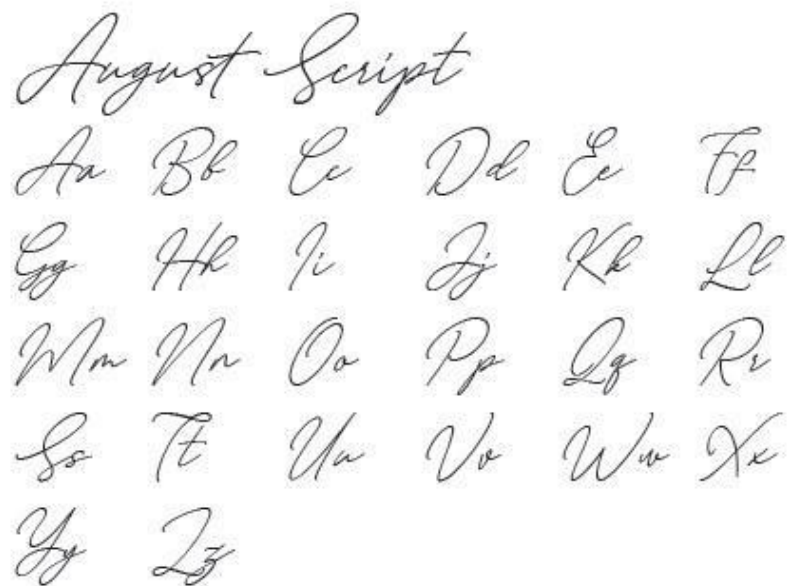 August Script
Aa Bb Cc Dd Ee Ff
Gg Hh Ii Jj Kk Ll
Mm Nn Oo Pp Qq Rr
Ss Tt Uu Vv Ww Xx
Yy Zz